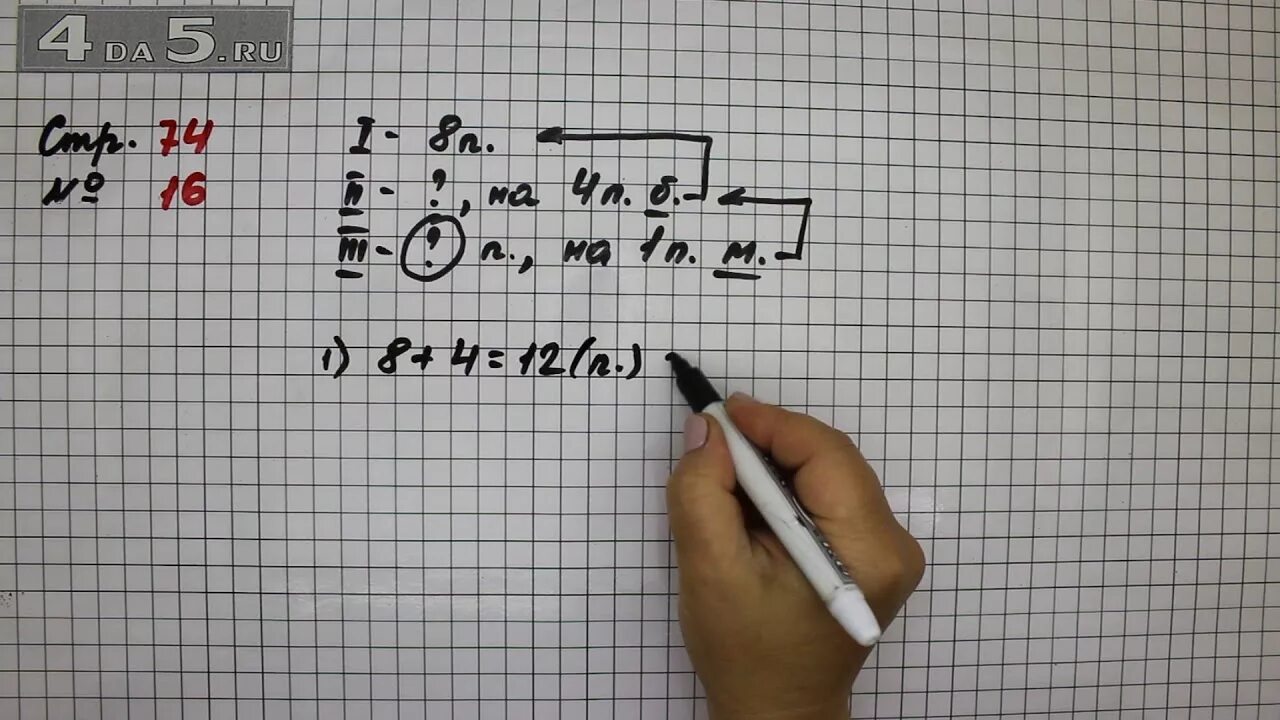 4DA5.RU
Стр. 74
№ 16
I - 8п.
II - ?, на 4п. б.
III - ? п., на 1п. м.
1) 8+4=12(п.)